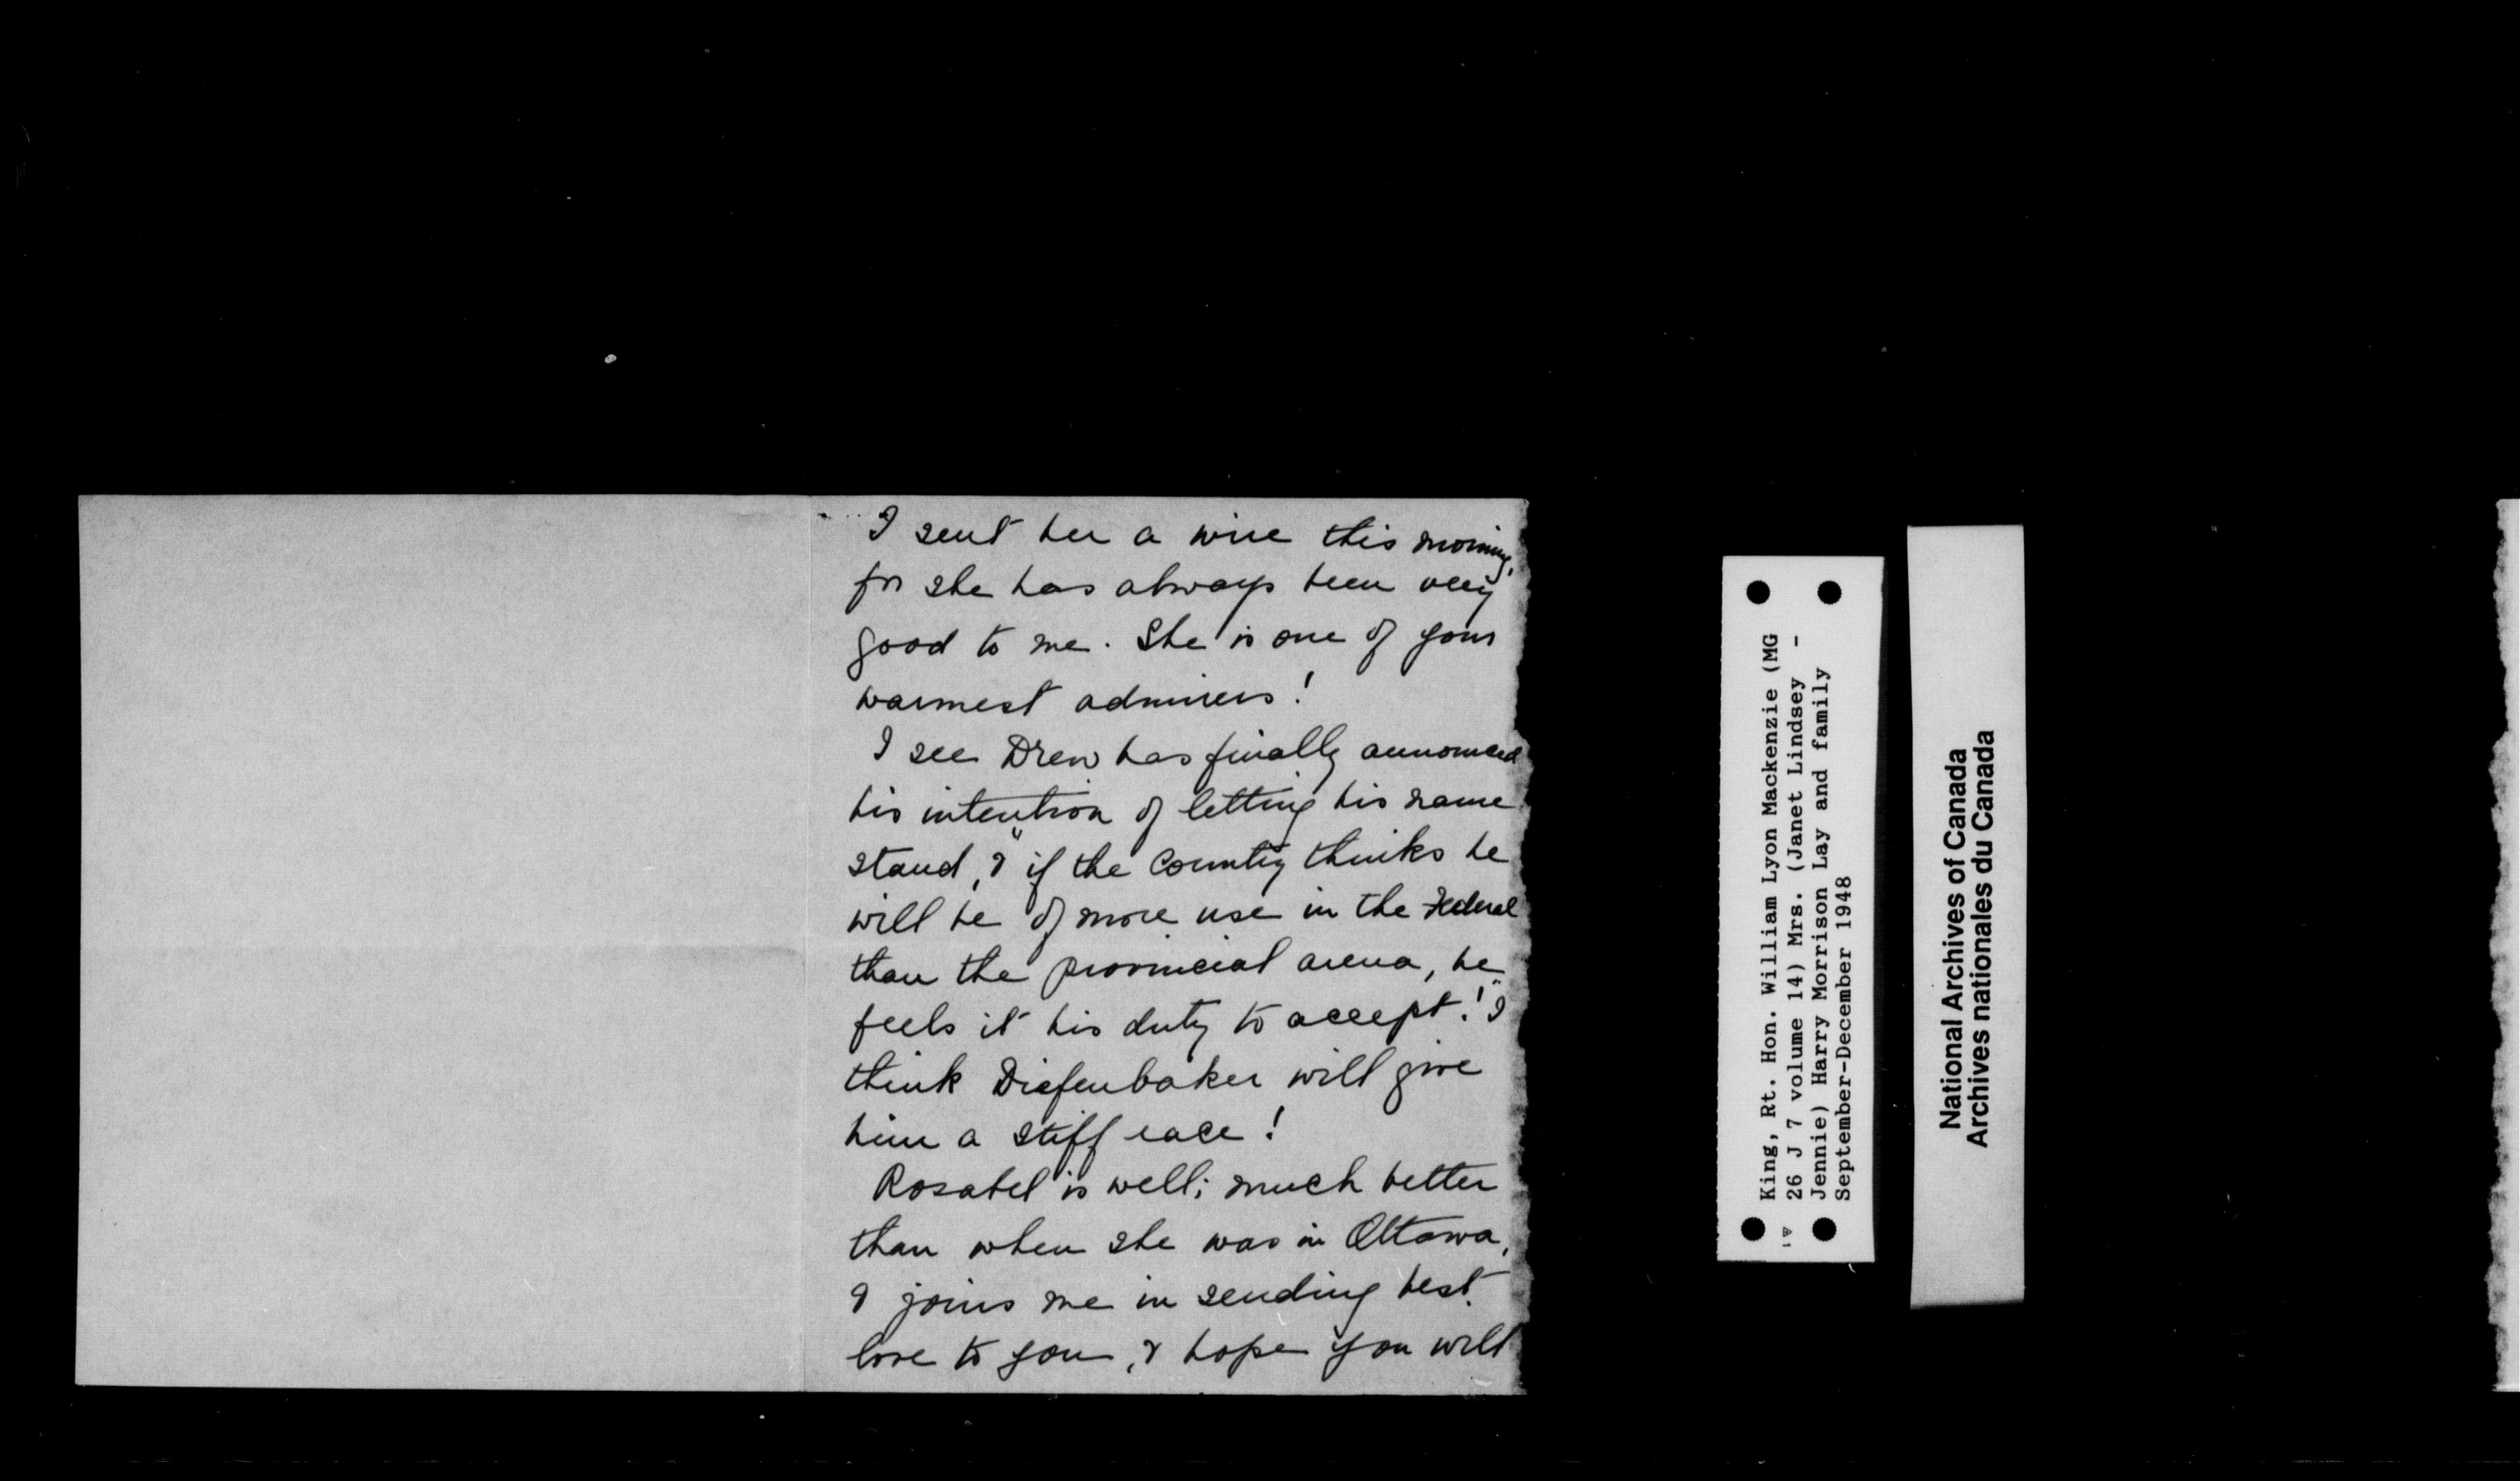 I sent her a wire this morning,
for she has always been very
good to me. She is one of your
warmest admirers!
I see Drew has finally announced
his intention of letting his name
stand, & "if the Country thinks he
will be of more use in the Federal
than the provincial arena, he
feels it his duty to accept!" I
think Diefenbaker will give
him a stiff race!
Rosabel is well; much better
than when she was in Ottawa,
& joins me in sending best
love to you, & hope you will
King, Rt. Hon. William Lyon Mackenzie (MG
26 J 7 volume 14) Mrs. (Janet Lindsey -
Jennie) Harry Morrison Lay and family
September-December 1948
National Archives of Canada
Archives nationales du Canada